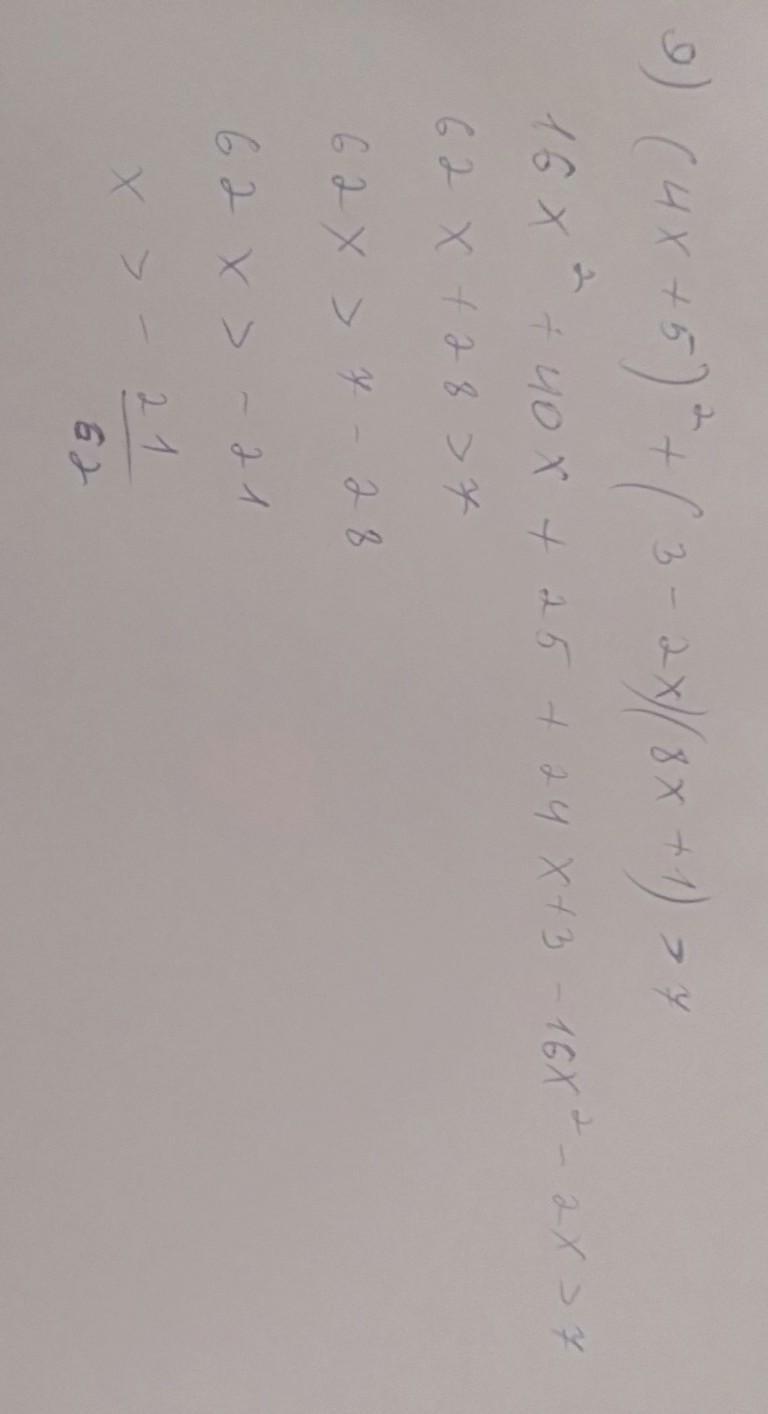 9) (4x+5)² + (3-2x)(8x+1) > 7
16x² + 40x + 25 + 24x + 3 - 16x² - 2x > 7
62x + 28 > 7
62x > 7 - 28
62x > -21
x > - 21/62